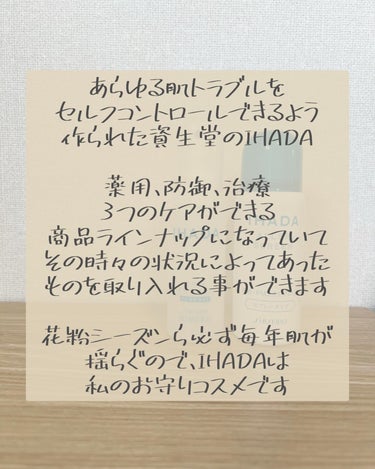 あらゆる肌トラブルを
セルフコントロールできるよう
作られた資生堂のIHADA
薬用、防御、治療
3つのケアができる
商品ラインナップになっていて
その時々の状況によってあった
ものを取り入れる事ができます
花粉シーズンら必ず毎年肌が
揺らぐので、IHADAは
私のお守りコスメです
IHADA